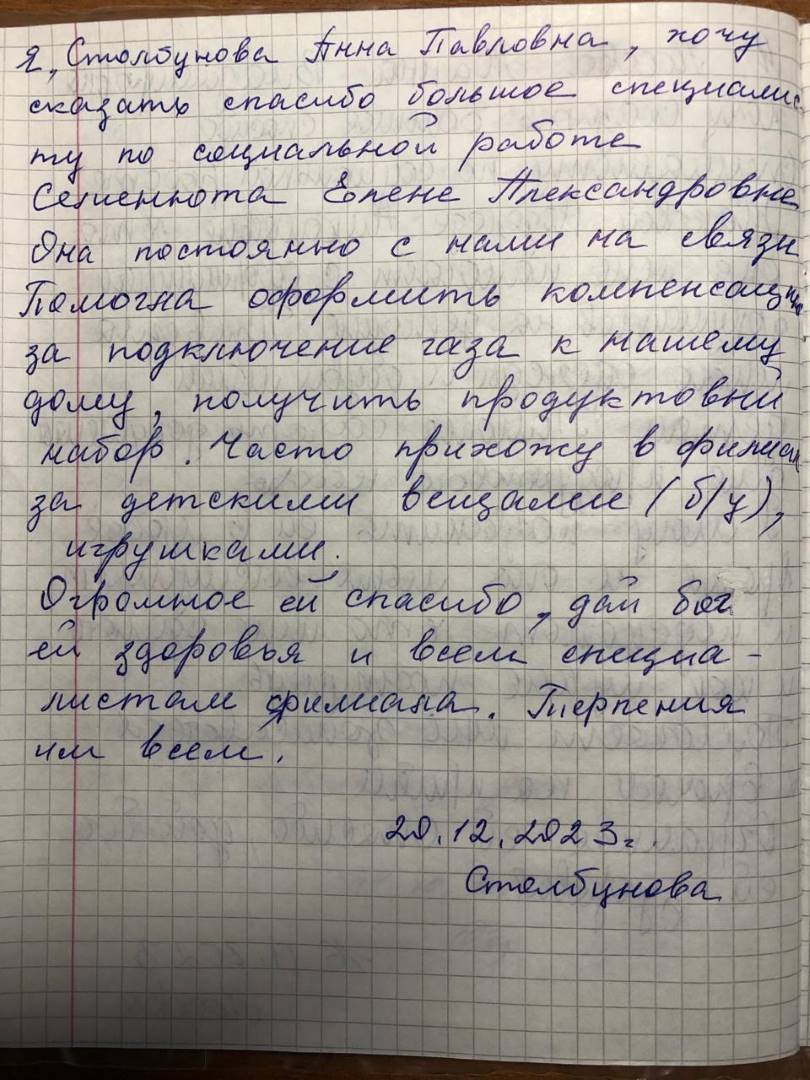 Я, Столбунова Анна Павловна, хочу
сказать спасибо большое специалис-
ту по социальной работе
Семенюта Елене Александровне
Она постоянно с нами на связи
Помогла оформить компенсацию
за подключение газа к нашему
дому, получить продуктовый
набор. Часто прихожу в филиал
за детскими вещами (б/у),
игрушками.
Огромное ей спасибо, дай бог
ей здоровья и всем специа-
листам филиала. Терпения
им всем.
20.12.2023г.
Столбунова